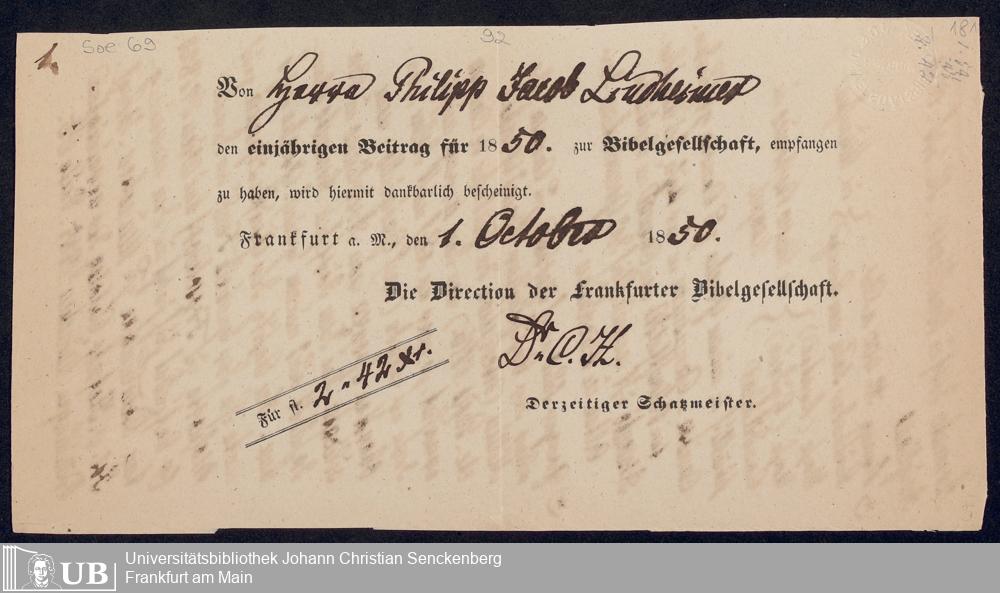 1.
Soe 69
92
181
Von Herrn Philipp Jacob Lindheimer
den einjährigen Beitrag für 1850. zur Bibelgesellschaft, empfangen
zu haben, wird hiermit dankbarlich bescheinigt.
Frankfurt a. M., den 1. October 1850.
Die Direction der Frankfurter Bibelgesellschaft.
Dr. C. H.
Für fl. 2 " 42 Xr.
Derzeitiger Schatzmeister.
UB
Universitätsbibliothek Johann Christian Senckenberg
Frankfurt am Main